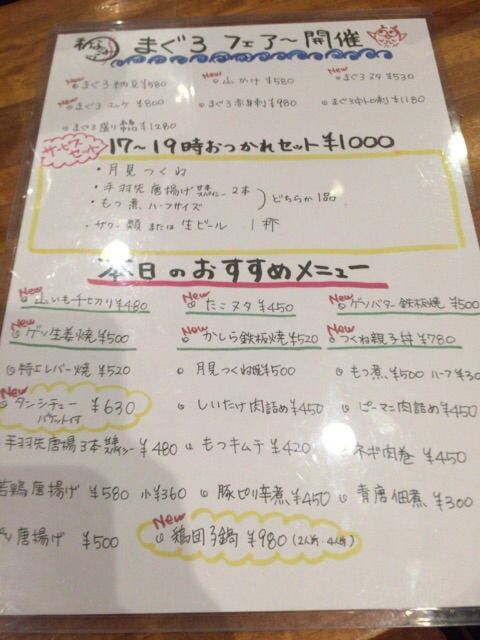 まぐろ フェアー 開催
New まぐろ納豆 ¥580 New 山かけ ¥580 New まぐろヌタ ¥530
New まぐろユッケ ¥800 まぐろ赤身刺 ¥980 まぐろ中トロ刺 ¥1180
まぐろ盛り ¥1280
サービスセット 17〜19時おつかれセット ¥1000
・月見つくね
・手羽先唐揚げ 2本
・もつ煮、ハーフサイズ
どちらか1品
・サワー類 または 生ビール 1杯
本日のおすすめメニュー
New 山いも千切り ¥480 New たこヌタ ¥450 New ゲソバター鉄板焼 ¥500
New ゲソ生姜焼 ¥500 New かしら鉄板焼 ¥520 New つくね親子丼 ¥780
特上レバー焼 ¥520 月見つくね ¥500 もつ煮 ¥500 ハーフ ¥30
New タンシチュー バケット付 ¥630 しいたけ肉詰め ¥450 ピーマン肉詰め ¥450
手羽先唐揚 3本 ¥480 もつキムチ ¥420 ネギ肉巻 ¥450
若鶏唐揚げ ¥580 小¥360 豚ピリ辛煮 ¥450 青唐佃煮 ¥300
唐揚げ ¥500 New 鶏団子鍋 ¥980 (2人前・4人前)